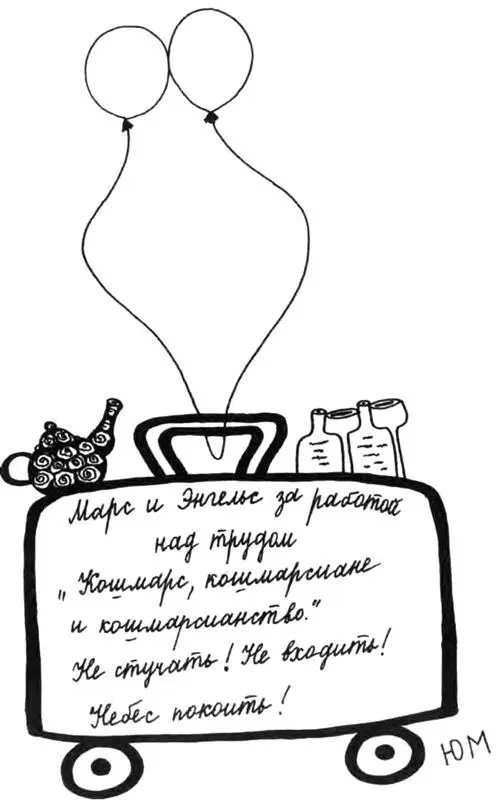 Марс и Энгельс за работой
над трудом
„Кошмарс, кошмарсиане
и кошмарсианство."
Не стучать! Не входить!
Небес покоить!
ЮМ